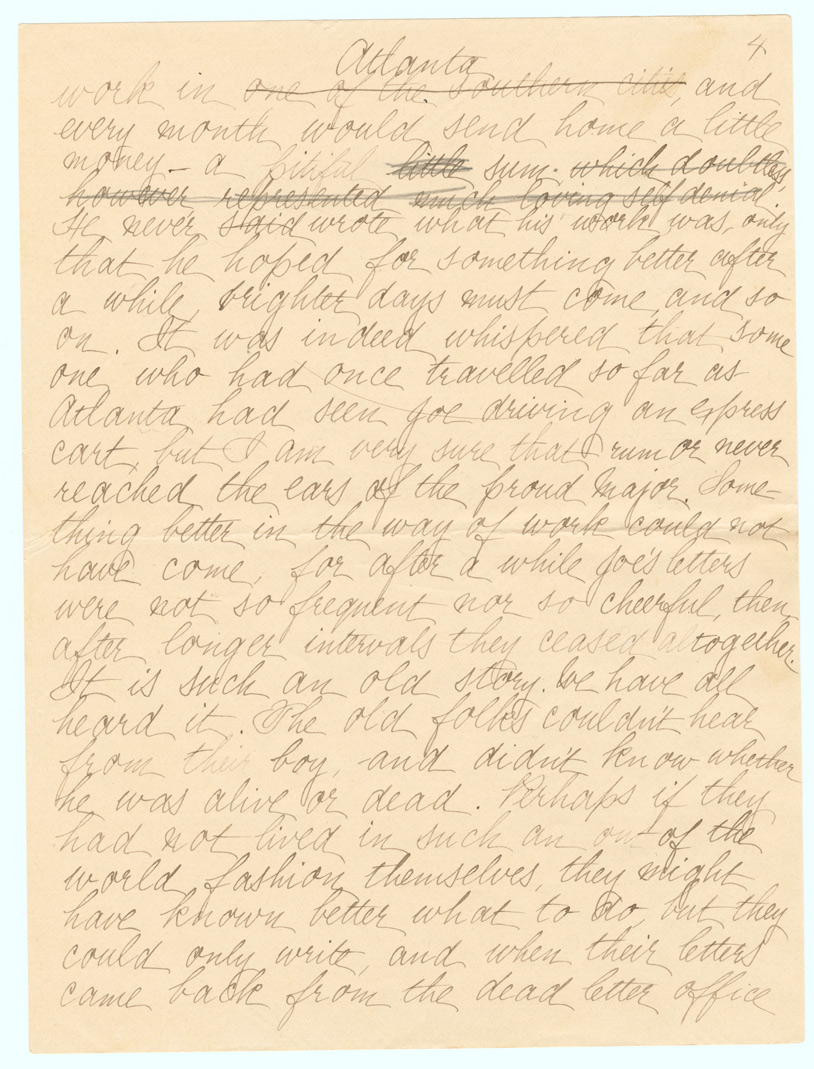 4
Atlanta
work in one of the Southern cities, and
every month would send home a little
money - a pitiful little sum. which doubtless,
however represented much loving self denial.
He never said wrote what his work was, only
that he hoped for something better after
a while, brighter days must come, and so
on. It was indeed whispered that some
one, who had once travelled so far as
Atlanta had seen Joe driving an express
cart, but I am very sure that rumor never
reached the ears of the proud Major. Some-
thing better in the way of work could not
have come, for after a while Joe's letters
were not so frequent nor so cheerful, then
after longer intervals they ceased altogether.
It is such an old story. We have all
heard it. The old folks couldn't hear
from their boy, and didn't know whether
he was alive or dead. Perhaps if they
had not lived in such an out of the
world fashion themselves, they might
have known better what to do, but they
could only write, and when their letters
came back from the dead letter office